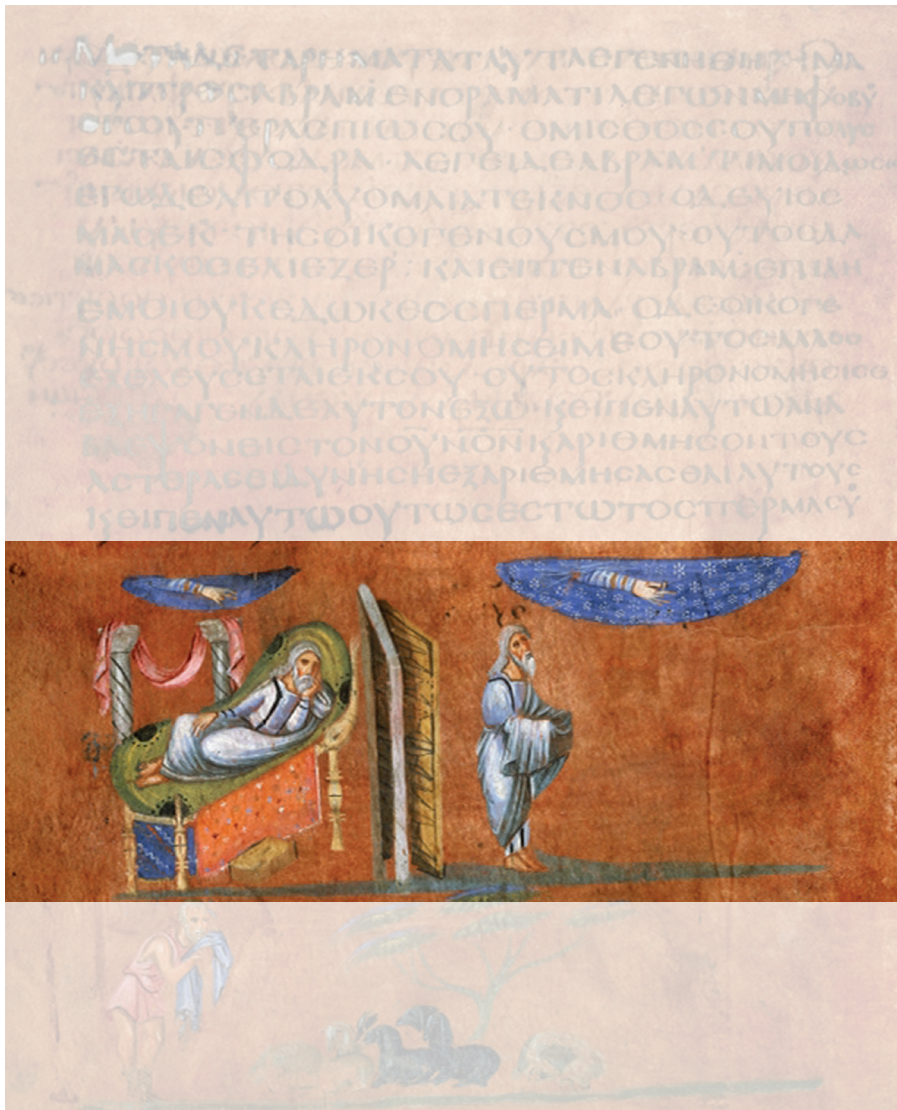 ΜΕΤΑΔΕΤΑΡΗΜΑΤΑΤΑΥΤΑΕΓΕΝΗΘΗΡΗΜΑ
ΚΥΠΡΟϹΑΒΡΑΜΕΝΟΡΑΜΑΤΙΛΕΓΩΝΜΗΦΟΒΟΥ
ΕΓΩΥΠΕΡΑϹΠΙΩϹΟΥ·ΟΜΙϹΘΟϹϹΟΥΠΟΛΥϹ
ΕϹΤΑΙϹΦΟΔΡΑ·ΛΕΓΕΙΔΕΑΒΡΑΜΤΙΜΟΙΔΩϹ
ΕΓΩΔΕΑΠΟΛΥΟΜΑΙΑΤΕΚΝΟϹ·ΟΔΕΥΙΟϹ
ΜΑϹΕΚΤΗϹΟΙΚΟΓΕΝΟΥϹΜΟΥ·ΟΥΤΟϹΔΑ
ΜΑϹΚΟϹΕΛΙΕΖΕΡ·ΚΑΙΕΙΠΕΝΑΒΡΑΜΕΠΙΔΗ
ΕΜΟΙΟΥΚΕΔΩΚΕϹϹΠΕΡΜΑ·ΟΔΕΟΙΚΟΓΕ
ΝΗϹΜΟΥΚΛΗΡΟΝΟΜΗϹΕΙΜΕΟΥΤΟϹ
ΕΞΕΛΕΥϹΕΤΑΙΕΚϹΟΥ·ΟΥΤΟϹΚΛΗΡΟΝΟΜΗϹΙϹΕ
ΕΞΗΓΑΓΕΝΔΕΑΥΤΟΝΕΞΩ·ΚΕΙΠΕΝΑΥΤΩΑΝΑ
ΒΛΕΨΟΝΕΙϹΤΟΝΟΥΝΟΝΚΑΡΙΘΜΗϹΟΝΤΟΥϹ
ΑϹΤΕΡΑϹΕΙΔΥΝΗϹΗΕΞΑΡΙΘΜΗϹΑϹΘΑΙΑΥΤΟΥϹ
ΚΕΙΠΕΝΑΥΤΩΟΥΤΩϹΕϹΤΩΤΟϹΠΕΡΜΑϹΥ